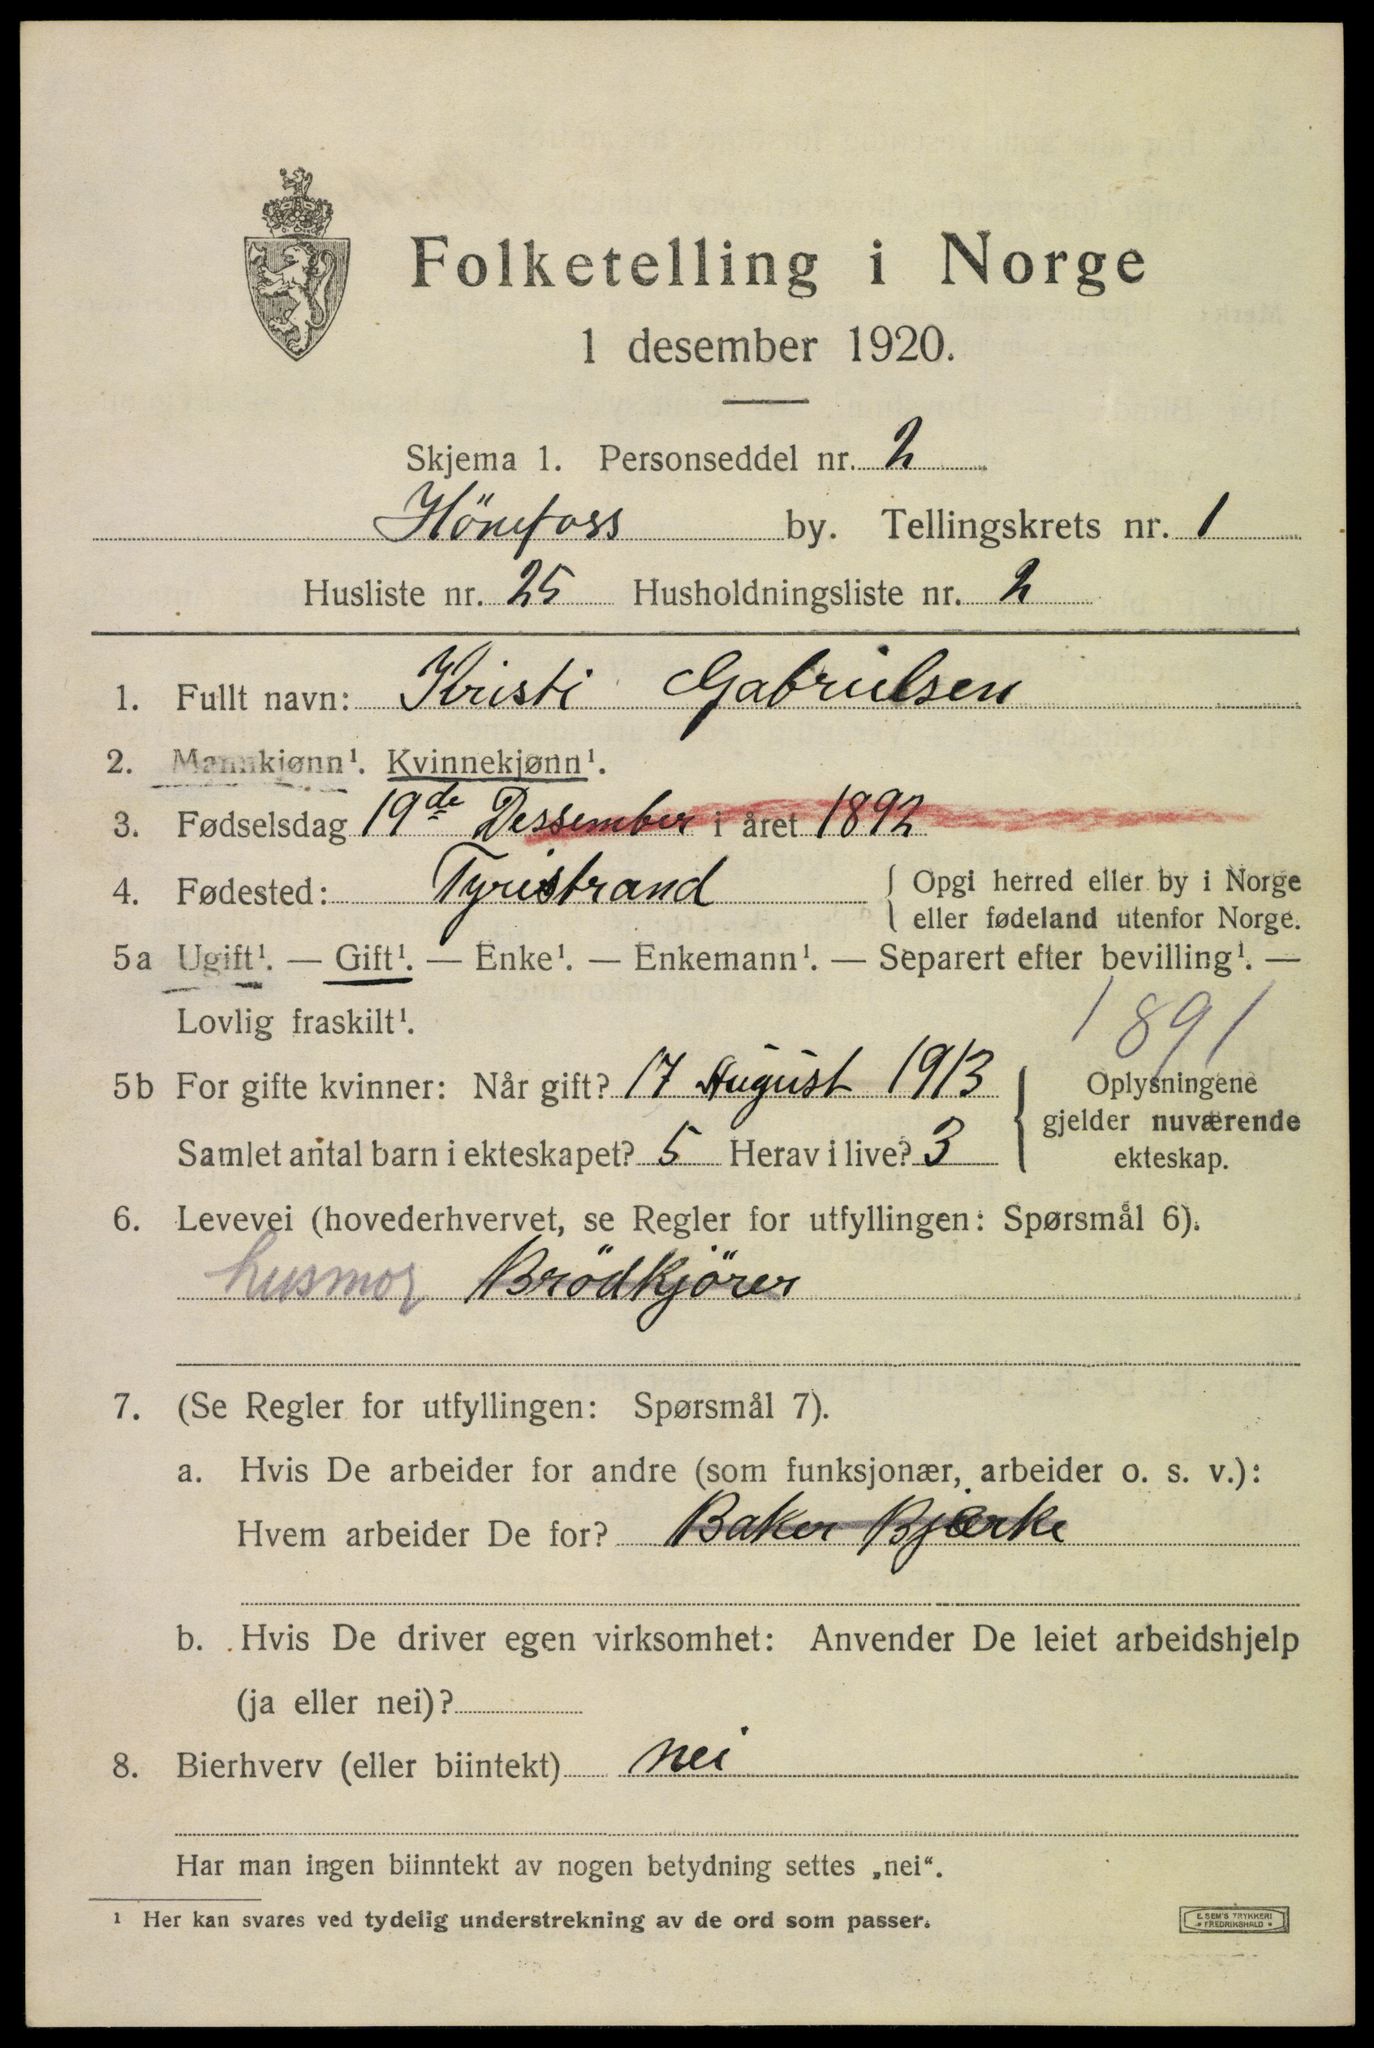 Folketelling i Norge
1 desember 1920.
Skjema 1. Personseddel nr. 2
Hönefoss by. Tellingskrets nr. 1
Husliste nr. 25 Husholdningsliste nr. 2
1. Fullt navn: Kristi Gabrielsen
2. Mannkjønn¹. Kvinnekjønn¹.
3. Fødselsdag 19de Dessember i året 1892
4. Fødested: Tyristrand { Opgi herred eller by i Norge
eller fødeland utenfor Norge.
5a Ugift¹. — Gift¹. — Enke¹. — Enkemann¹. — Separert efter bevilling¹. —
Lovlig fraskilt¹. 1891
5b For gifte kvinner: Når gift? 17 August 1913 { Oplysningene
gjelder nuværende
Samlet antal barn i ekteskapet? 5 Herav i live? 3 ekteskap.
6. Levevei (hovederhvervet, se Regler for utfyllingen: Spørsmål 6).
husmor Brödkjörer
7. (Se Regler for utfyllingen: Spørsmål 7).
a. Hvis De arbeider for andre (som funksjonær, arbeider o. s. v.):
Hvem arbeider De for? Baker Bjerke
b. Hvis De driver egen virksomhet: Anvender De leiet arbeidshjelp
(ja eller nei)?
8. Bierhverv (eller biintekt) nei
Har man ingen biinntekt av nogen betydning settes „nei“.
¹ Her kan svares ved tydelig understrekning av de ord som passer.
E. SEM'S TRYKKERI
FREDRIKSHALD